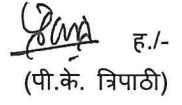 ह./-
(पी.के. त्रिपाठी)